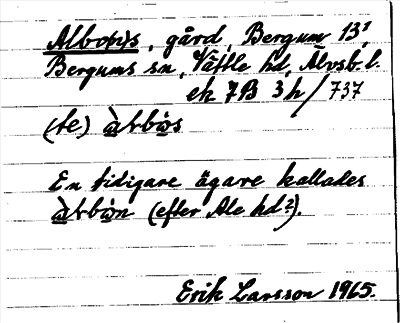 Albo(r)s, gård, Bergum 13¹
Bergums sn, Vättle hd, Älvsb. l.
ek 7B 3h/737
(te) àrbώs
En tidigare ägare kallades
àrbώn (efter Ale hd?).
Erik Larsson 1965.